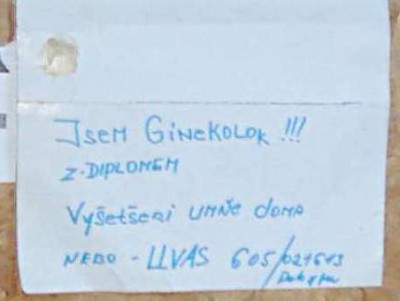 Jsem Ginekolok !!!
z-DIPLOMEM
Vyšetšeni UMŇE DOMA
NEBO - UVAS 605/021643